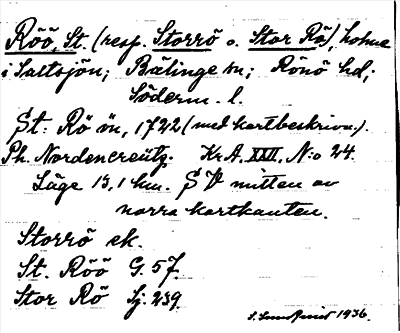 Röö, St. (resp. Storrö o. Stor Rö), holme
i Saltsjön; Bälinge sn; Rönö hd;
Söderm. l.
St. Rö ön, 1722 (med kartbeskrivn.).
Ph. Nordencreütz. Kr.A. XXII, N:o 24.
Läge 15,1 km. SV mitten av
norra kartkanten.
Storrö ek.
St. Röö G. 57.
Stor Rö Sj. 239.
1936.